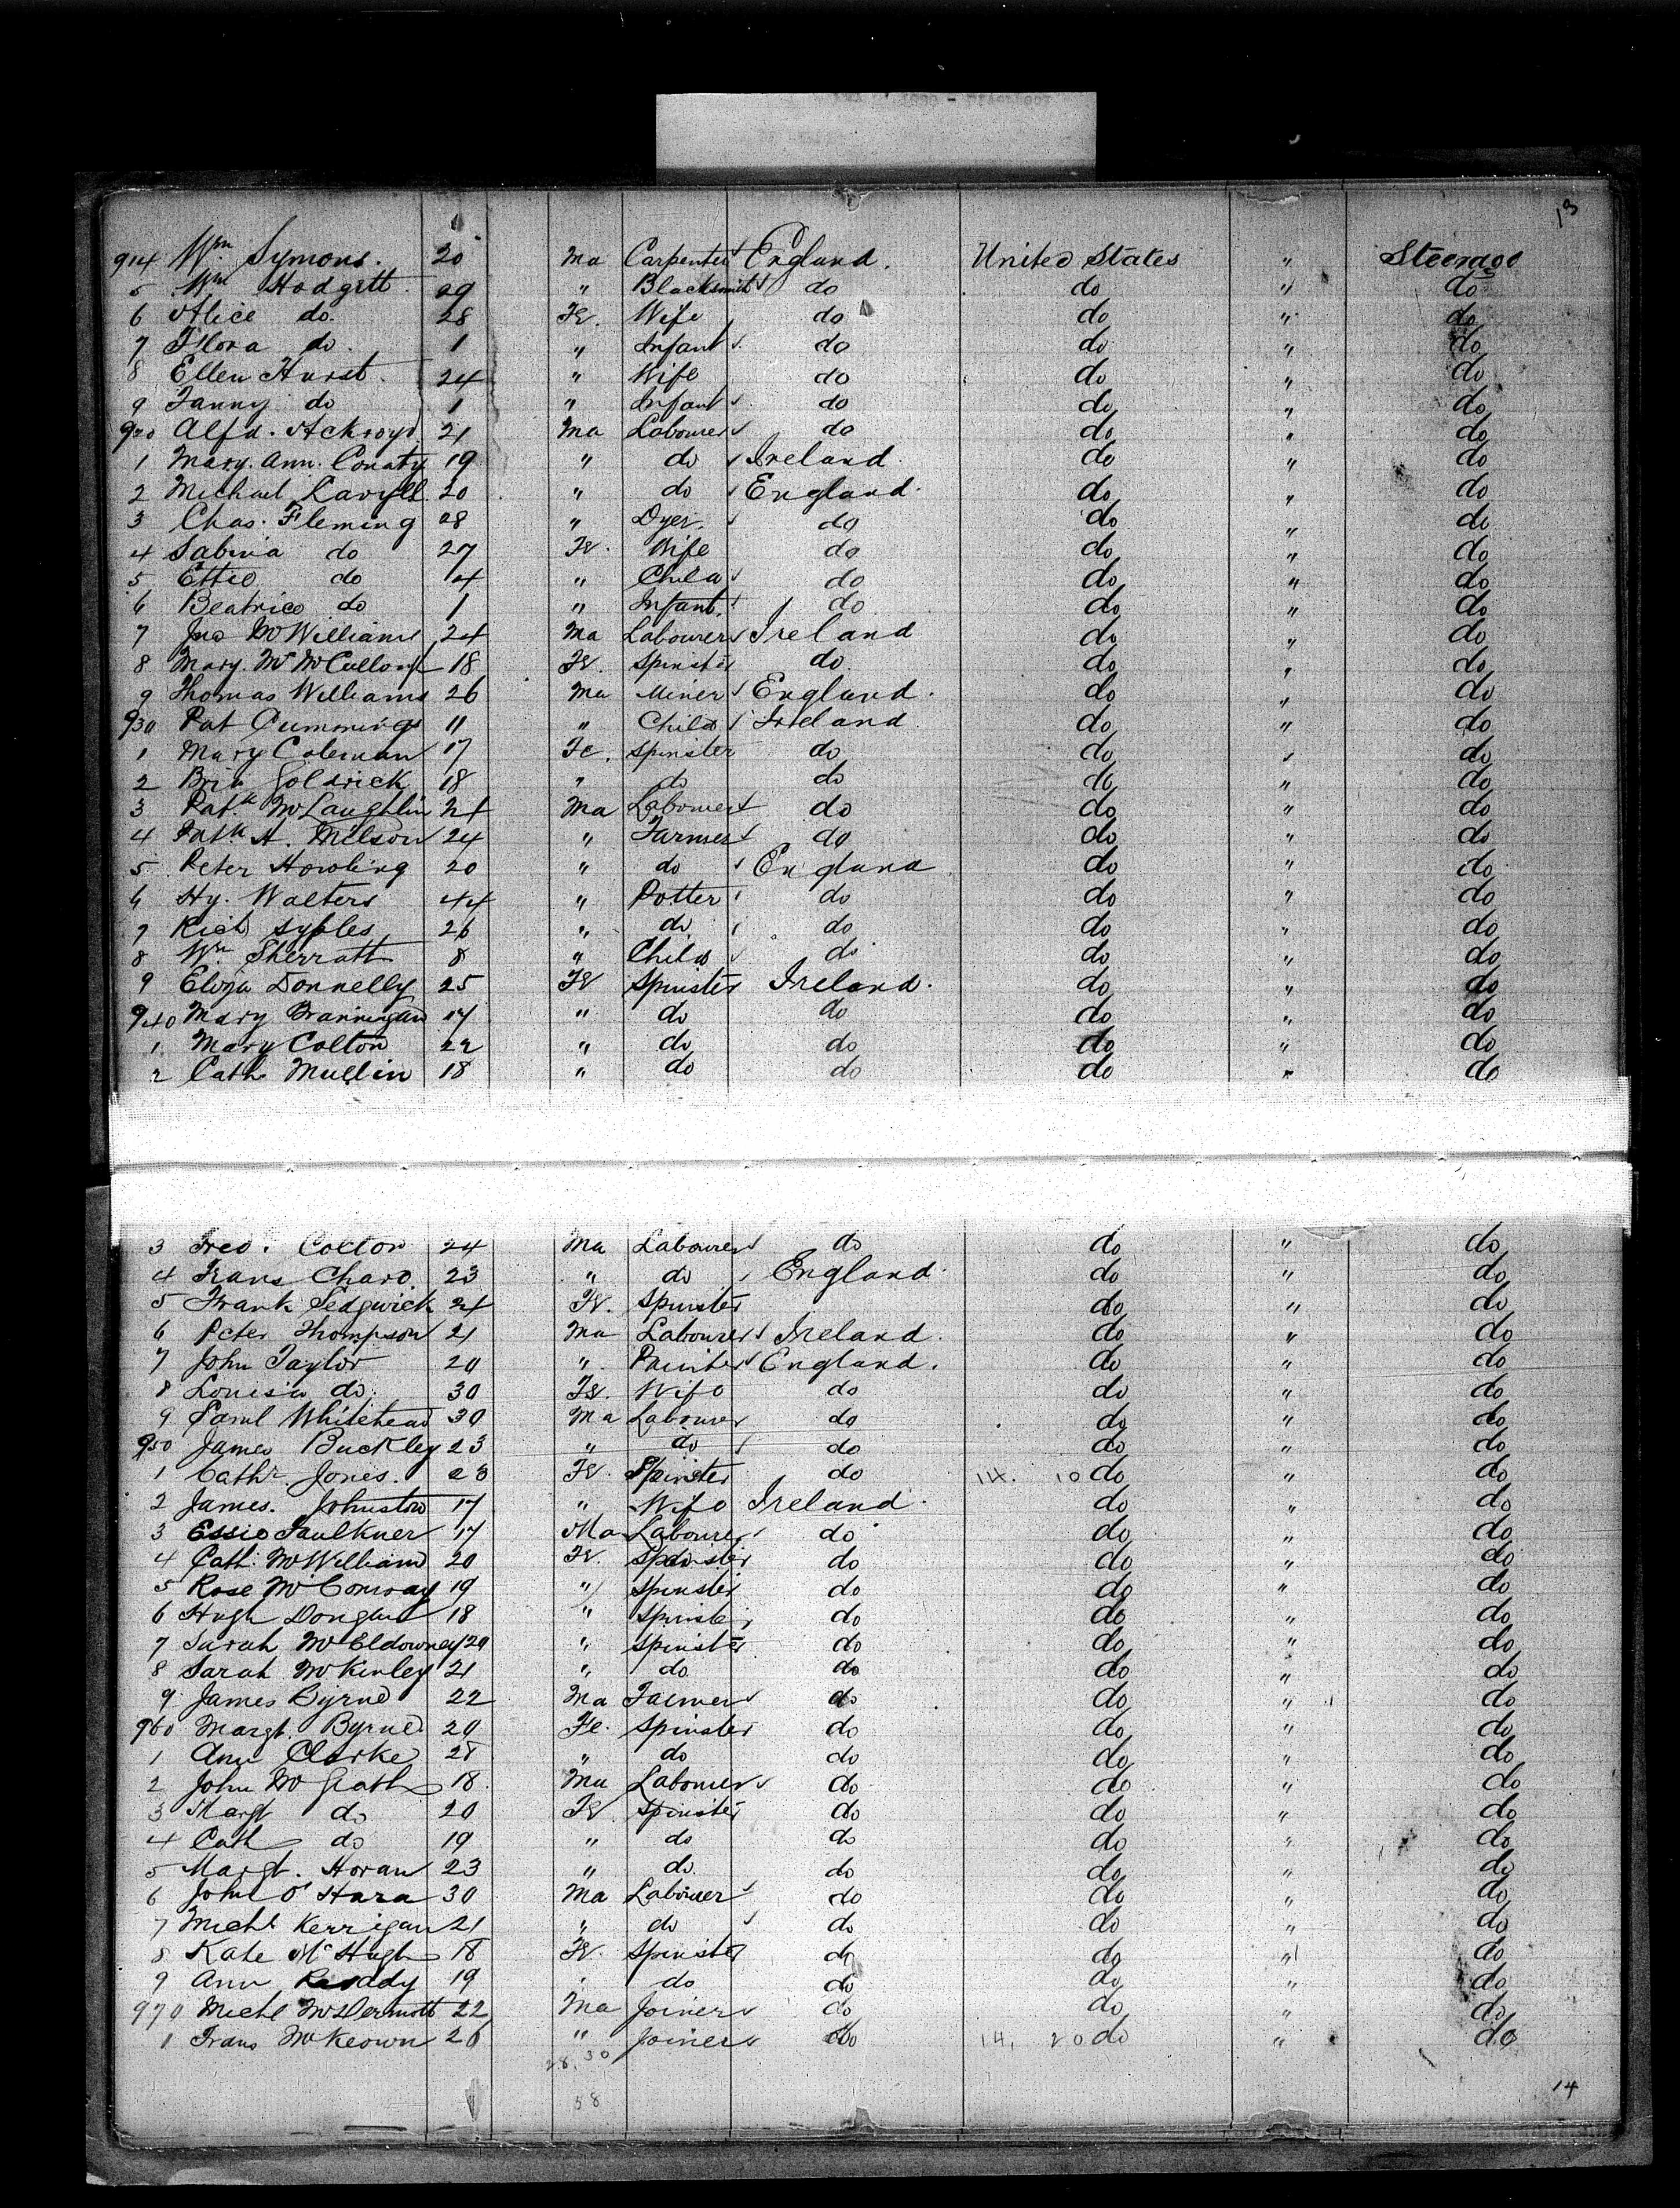 13
914 Wm Symons. 20 Ma Carpenter England. United States " Steerage
5 Wm Hodgett 29 " Blacksmith do do " do
6 Alice do. 28 Fe. Wife do do " do
7 Flora do. 1 " Infant do do " do
8 Ellen Hurst. 24 " Wife do do " do
9 Fanny do 1 " Infant do do " do
920 Alfd. Ackroyd 21 Ma Labourer do do " do
1 Mary. Ann. Conaty 19 " do Ireland. do " do
2 Michael 20 " do England. do " do
3 Chas. Fleming 28 " Dyer. do do " do
4 Sabina do 27 Fe. Wife do do " do
5 Ettie do 4 " Child do do " do
6 Beatrice do 1 " Infant. do do " do
7 Jno McWilliams 24 Ma Labourer Ireland do " do
8 Mary. 18 Fe. Spinster do. do " do
9 Thomas Williams 26 Ma Miner England. do " do
930 Pat Cummings 11 " Child Ireland do " do
1 Mary Coleman 17 Fe. Spinster do do " do
2 Goldrick 18 " do do do " do
3 Patk McLaughlin 24 Ma Labourer do do " do
4 Patk A. 24 " Farmer do do " do
5 Peter Howling 20 " do England do " do
6 Hy. Walters 44 " Potter do do " do
7 Richd 26 " do do do " do
8 Wm Sherratt 8 " Child do do " do
9 Eliza Donnelly 25 Fe Spinster Ireland. do " do
940 Mary Brannigan 17 " do do do " do
1 Mary Colton 22 " do do do " do
2 Cath Mullin 18 " do do do " do
3 Fred. Colton 24 Ma Labourer do do " do
4 Frans 23 " do England. do " do
5 Frank Sedgwick 24 Fe. Spinster do " do
6 Peter Thompson 21 Ma Labourer Ireland. do " do
7 John Taylor 20 " England. do " do
8 Louisa do. 30 Fe. Wife do do " do
9 Saml Whitehead 30 Ma Labourer do do " do
950 James Buckley 23 " do do do " do
1 Cathr Jones. 23 Fe. Spinster do 14. 10 do " do
2 James. Johnston 17 " Wife Ireland. do " do
3 Essie Faulkner 17 Ma Labourer do do " do
4 Cath. McWilliam 20 Fe. Spinster do do " do
5 Rose McConway 19 " Spinster do do " do
6 Hugh Dougan 18 " Spinster do do " do
7 Sarah McEldowney 20 " Spinster do do " do
8 Sarah McKinley 21 " do do do " do
9 James Byrne 22 Ma Farmer do do " do
960 Margt. Byrne 20 Fe. Spinster do do " do
1 Ann Clarke 28 " do do do " do
2 John McGrath 18 Ma Labourer do do " do
3 Margt do 20 Fe Spinster do do " do
4 Cath do 19 " do do do " do
5 Margt. Horan 23 " do do do " do
6 John O'Hara 30 Ma Labourer do do " do
7 Michl Kerrigan 21 " do do do " do
8 Kate McHugh 18 Fe. Spinster do do " do
9 Ann 19 " do do do " do
970 Michl McDermott 22 Ma Joiner do do " do
1 Frans McKeown 26 " Joiner do 14. 20 do " do
28. 30
58
14